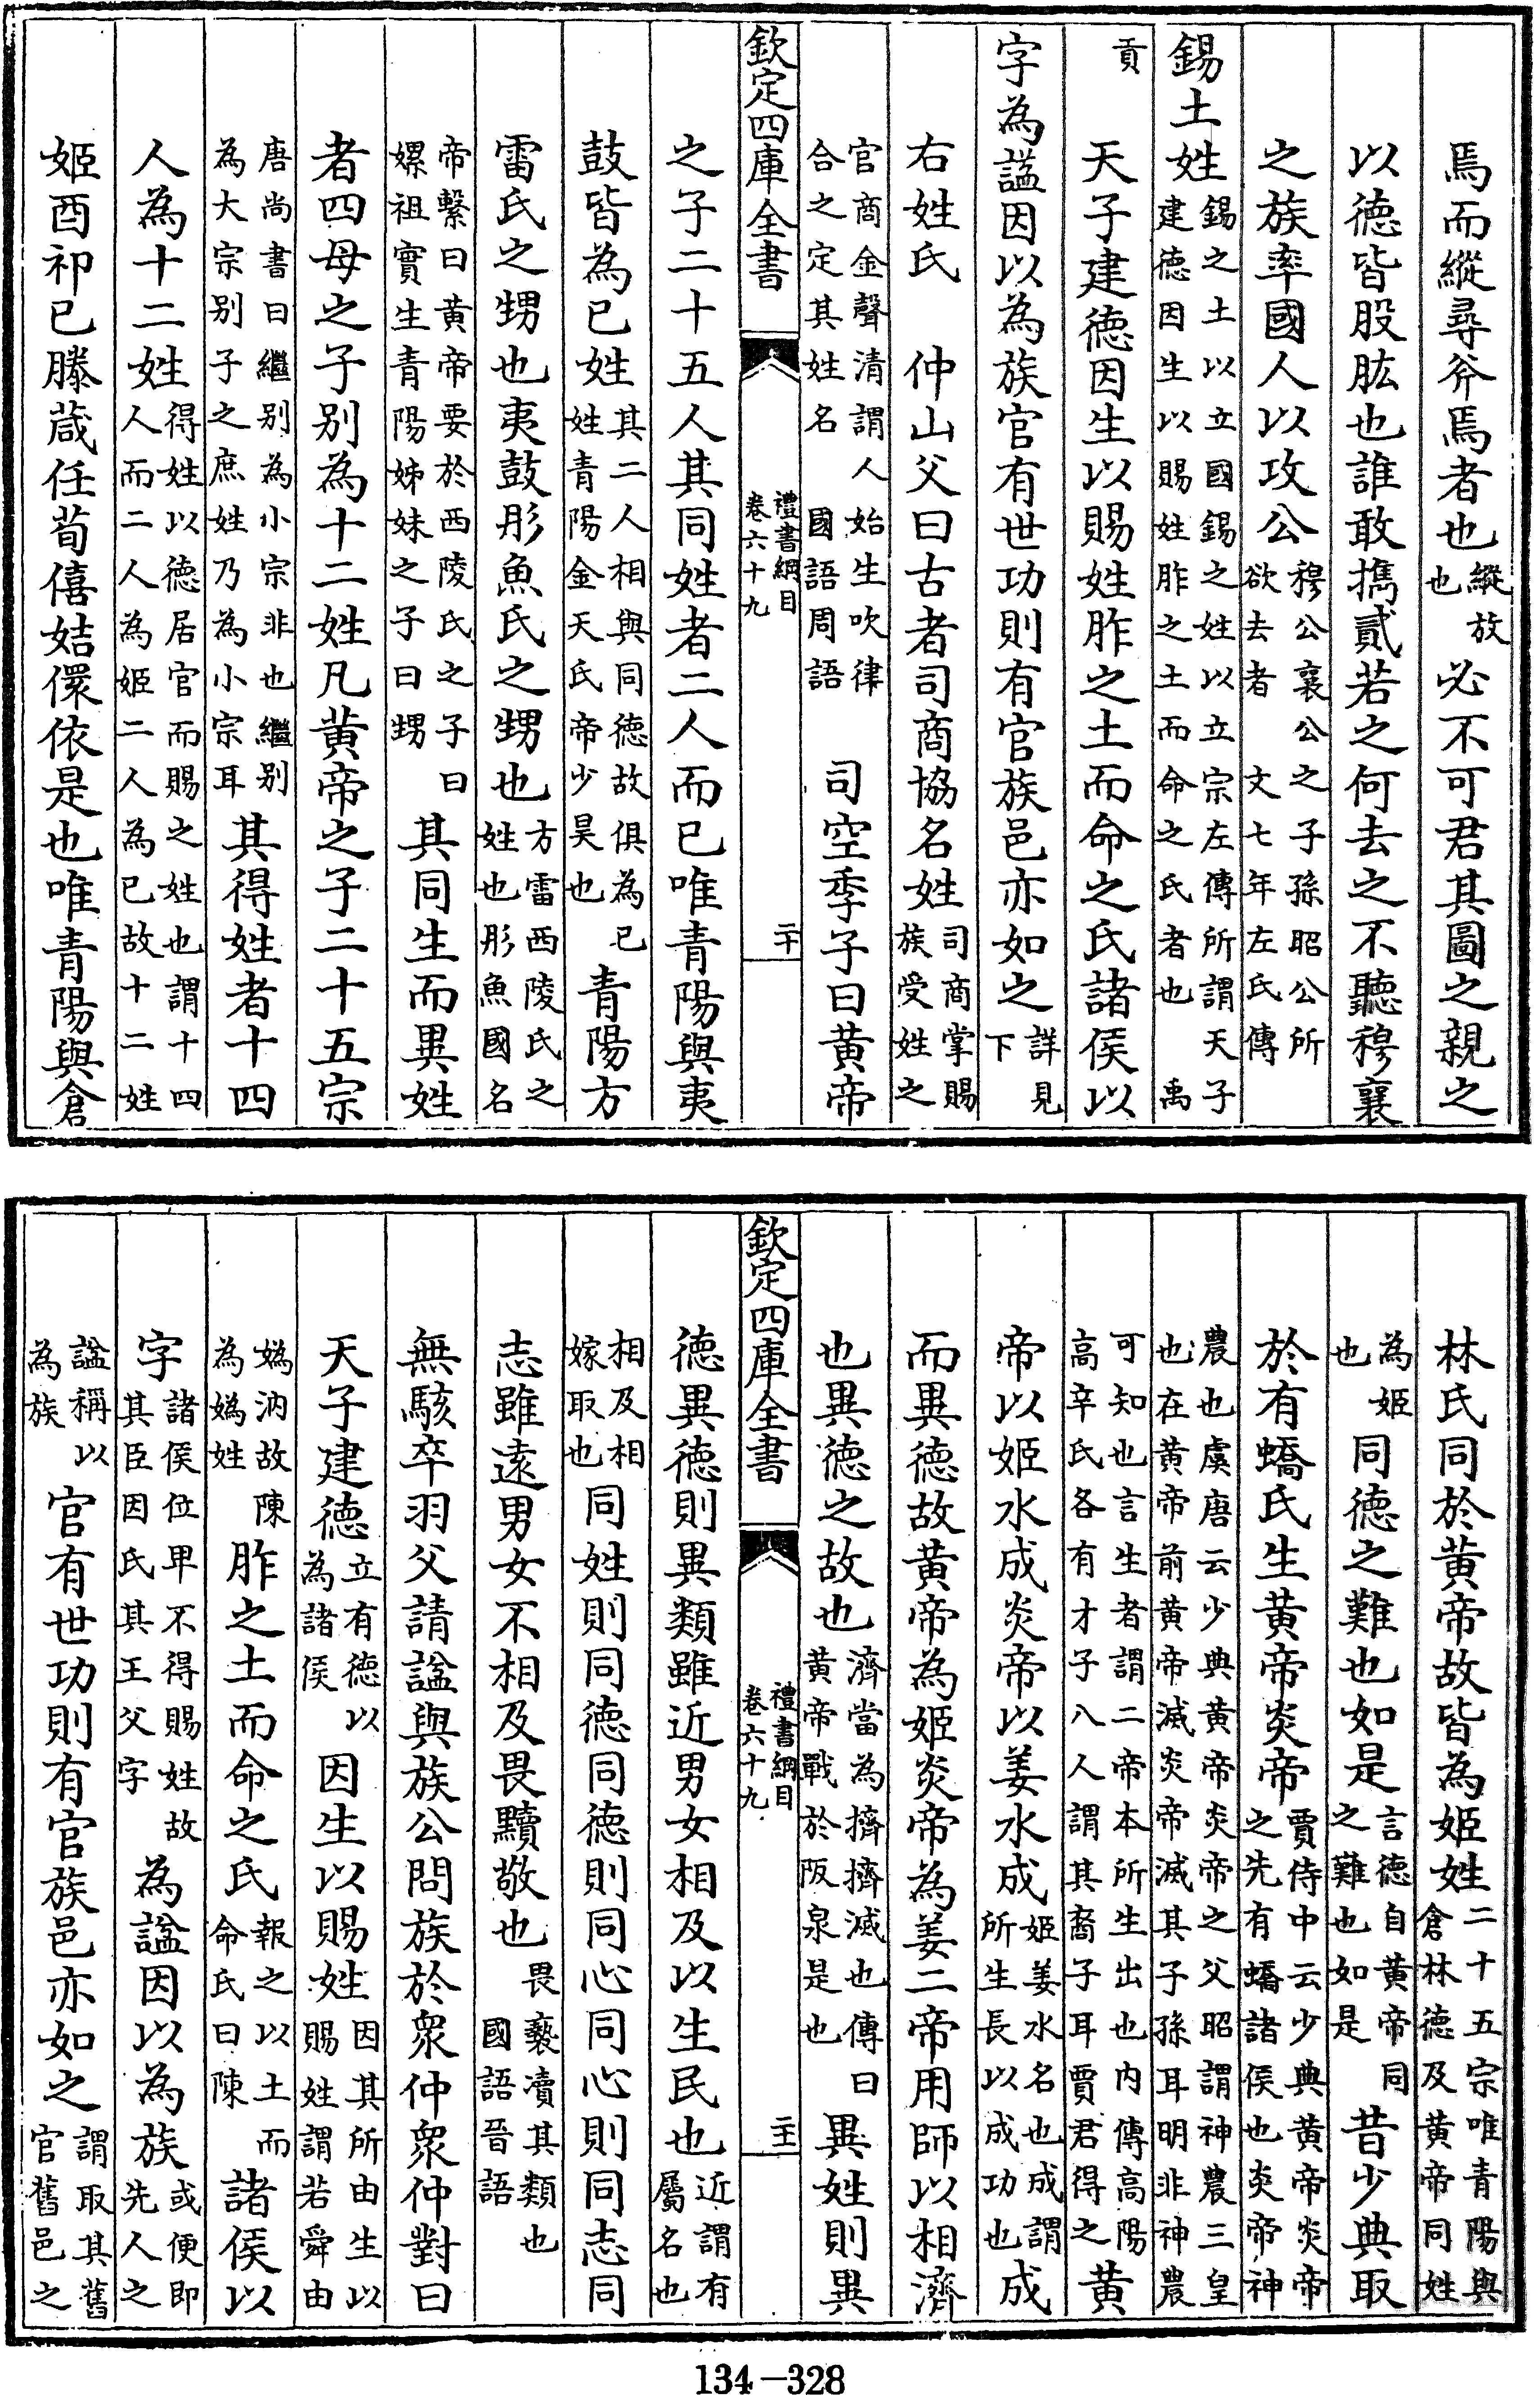 焉而縱尋斧焉者也縱放也必不可君其圖之親之
以德皆股肱也誰敢攜貳若之何去之不聽穆襄
之族率國人以攻公穆公襄公之子孫昭公所欲去者 文七年左氏傳
錫土姓錫之土以立國錫之姓以立宗左傳所謂天子建德因生以賜姓胙之土而命之氏者也 禹
貢 天子建德因生以賜姓胙之土而命之氏諸侯以
字為諡因以為族官有世功則有官族邑亦如之詳見下
右姓氏 仲山父曰古者司商協名姓司商掌賜族受姓之
官商金聲清謂人始生吹律合之定其姓名 國語周語 司空季子曰黄帝
欽定四庫全書 禮書綱目 卷六十九 二十
之子二十五人其同姓者二人而已唯青陽與夷
鼓皆為已姓其二人相與同德故俱為已姓青陽金天氏帝少昊也青陽方
雷氏之甥也夷鼓彤魚氏之甥也方雷西陵氏之姓也彤魚國名
帝繫曰黄帝要於西陵氏之子曰嫘祖實生青陽姊妹之子曰甥其同生而異姓
者四母之子别為十二姓凡黄帝之子二十五宗
唐尚書曰繼别為小宗非也繼别為大宗别子之庶姓乃為小宗耳其得姓者十四
人為十二姓得姓以德居官而賜之姓也謂十四人而二人為姬二人為已故十二姓
姬酉祁已滕葴任荀僖姞儇依是也唯青陽與倉
林氏同於黄帝故皆為姬姓二十五宗唯青陽與倉林德及黄帝同姓
為姬也同德之難也如是言德自黄帝同之難也如是昔少典取
於有蟜氏生黄帝炎帝賈侍中云少典黄帝炎帝之先有蟜諸侯也炎帝神
農也虞唐云少典黄帝炎帝之父昭謂神農三皇也在黄帝前黄帝滅炎帝滅其子孫耳明非神農
可知也言生者謂二帝本所生出也内傳高陽高辛氏各有才子八人謂其裔子耳賈君得之黄
帝以姬水成炎帝以姜水成姬姜水名也成謂所生長以成功也成
而異德故黄帝為姬炎帝為姜二帝用師以相濟
也異德之故也濟當為擠擠滅也傳曰黄帝戰於阪泉是也異姓則異
欽定四庫全書 禮書綱目 卷六十九 二十一
德異德則異類雖近男女相及以生民也近謂有屬名也
相及相嫁取也同姓則同德同德則同心同心則同志同
志雖遠男女不相及畏黷敬也畏䙝凟其類也國語晉語
無駭卒羽父請諡與族公問族於衆仲衆仲對曰
天子建德立有德以為諸侯因生以賜姓因其所由生以賜姓謂若舜由
媯汭故陳為媯姓胙之土而命之氏報之以土而命氏曰陳諸侯以
字諸侯位卑不得賜姓故其臣因氏其王父字為諡因以為族或便即先人之
諡稱以為族官有世功則有官族邑亦如之謂取其舊官舊邑之
134—328